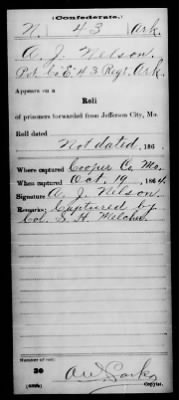 (Confederate.)
N. 43 Ark.
A. J. Nelson.
Pvt. Co. E. 43 Regt. Ark.
Appears on a
Roll
of prisoners forwarded from Jefferson City, Mo.
Roll dated
Not dated, 186 .
Where captured Cooper Co. Mo.
When captured Oct. 19, 1864.
Signature A. J. Nelson.
Remarks: Captured by
Col. S. H. Melcher
Number of roll:
30
Copyist.